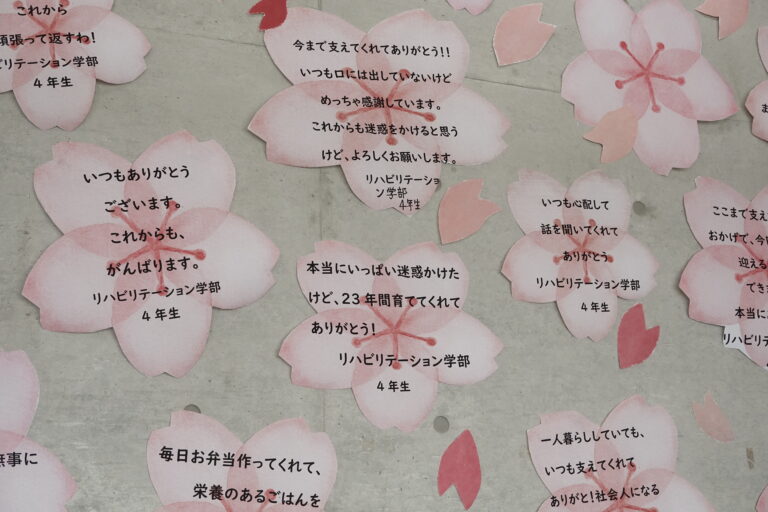 これから
頑張って返すわ!
リハビリテーション学部
4年生
今まで支えてくれてありがとう!!
いつも口には出していないけど
めっちゃ感謝しています。
これからも迷惑をかけると思う
けど、よろしくお願いします。
リハビリテーショ
ン学部
4年生
いつもありがとう
ございます。
これからも、
がんばります。
リハビリテーション学部
4年生
本当にいっぱい迷惑かけた
けど、23年間育ててくれて
ありがとう!
リハビリテーション学部
4年生
いつも心配して
話を聞いてくれて
ありがとう
リハビリテーション学部
4年生
ここまで支え
おかげで、今
迎える
でき
本当に
リハビリテ
無事に
毎日お弁当作ってくれて、
栄養のあるごはんを
一人暮らししていても、
いつも支えてくれて
ありがと!社会人になる